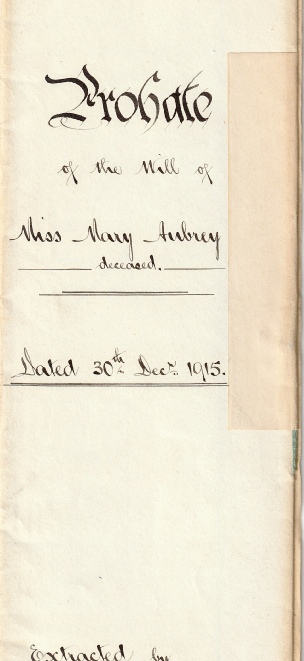 Probate
of the Will of
Miss Mary Aubrey
deceased.
Dated 30th Decr. 1915.
Extracted by